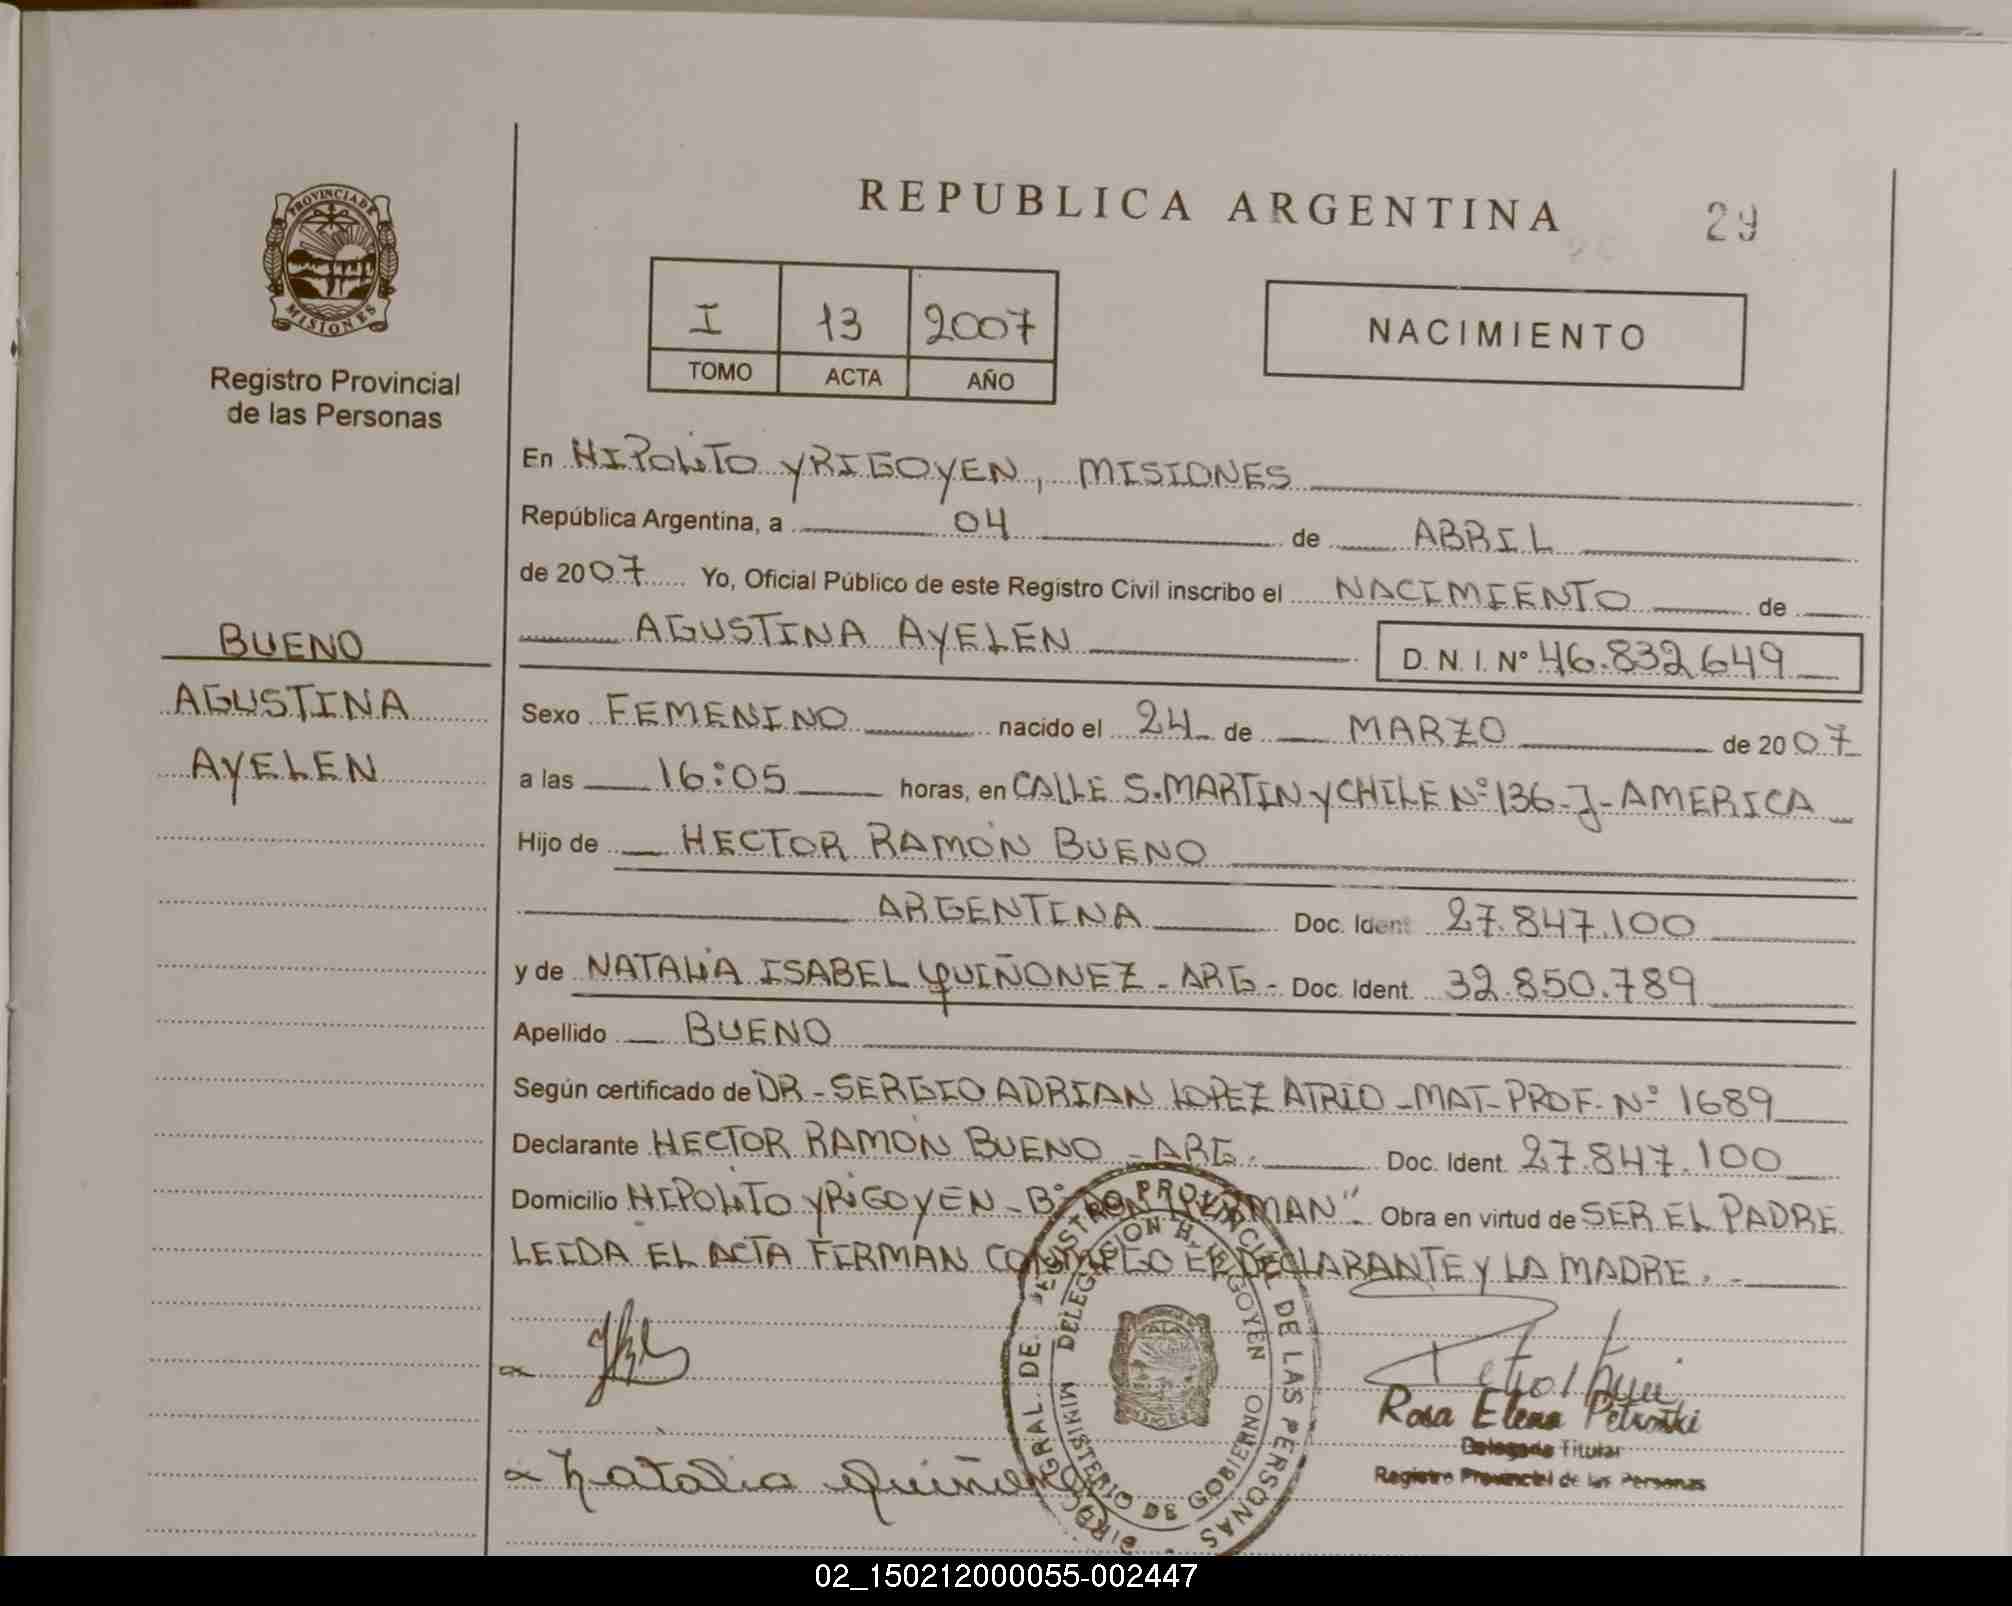 PROVINCIA DE
MISIONES
Registro Provincial
de las Personas
BUENO
AGUSTINA
AYELEN
REPUBLICA ARGENTINA
29
I 13 2007
TOMO ACTA AÑO
NACIMIENTO
En HIPOLITO YRIGOYEN, MISIONES
República Argentina, a 04 de ABRIL
de 2007 Yo, Oficial Público de este Registro Civil inscribo el NACIMIENTO de
AGUSTINA AYELEN D. N. I. N° 46.832649
Sexo FEMENINO nacido el 24 de MARZO de 2007
a las 16:05 horas, en CALLE S.MARTIN Y CHILE N° 136-J-AMERICA
Hijo de HECTOR RAMÓN BUENO
ARGENTINA Doc. Ident 27.847.100
y de NATALIA ISABEL QUIÑONEZ - ARG - Doc. Ident. 32.850.789
Apellido BUENO
Según certificado de DR - SERGIO ADRIAN LOPEZ ATRIO - MAT- PROF- N° 1689
Declarante HECTOR RAMON BUENO - ARG. Doc. Ident. 27.847.100
Domicilio HIPOLITO YRIGOYEN - B° Obra en virtud de SER EL PADRE
LEIDA EL ACTA FIRMAN CONMIGO EL DECLARANTE Y LA MADRE.
DIRECC. GRAL. DE REGISTRO PROVINCIAL DE LAS PERSONAS
DELEGACION H. IRIGOYEN
MINISTERIO DE GOBIERNO
Natalia Quiñonez
Rosa Elena Petroski
Delegada Titular
Registro Provincial de las Personas
02_150212000055-002447